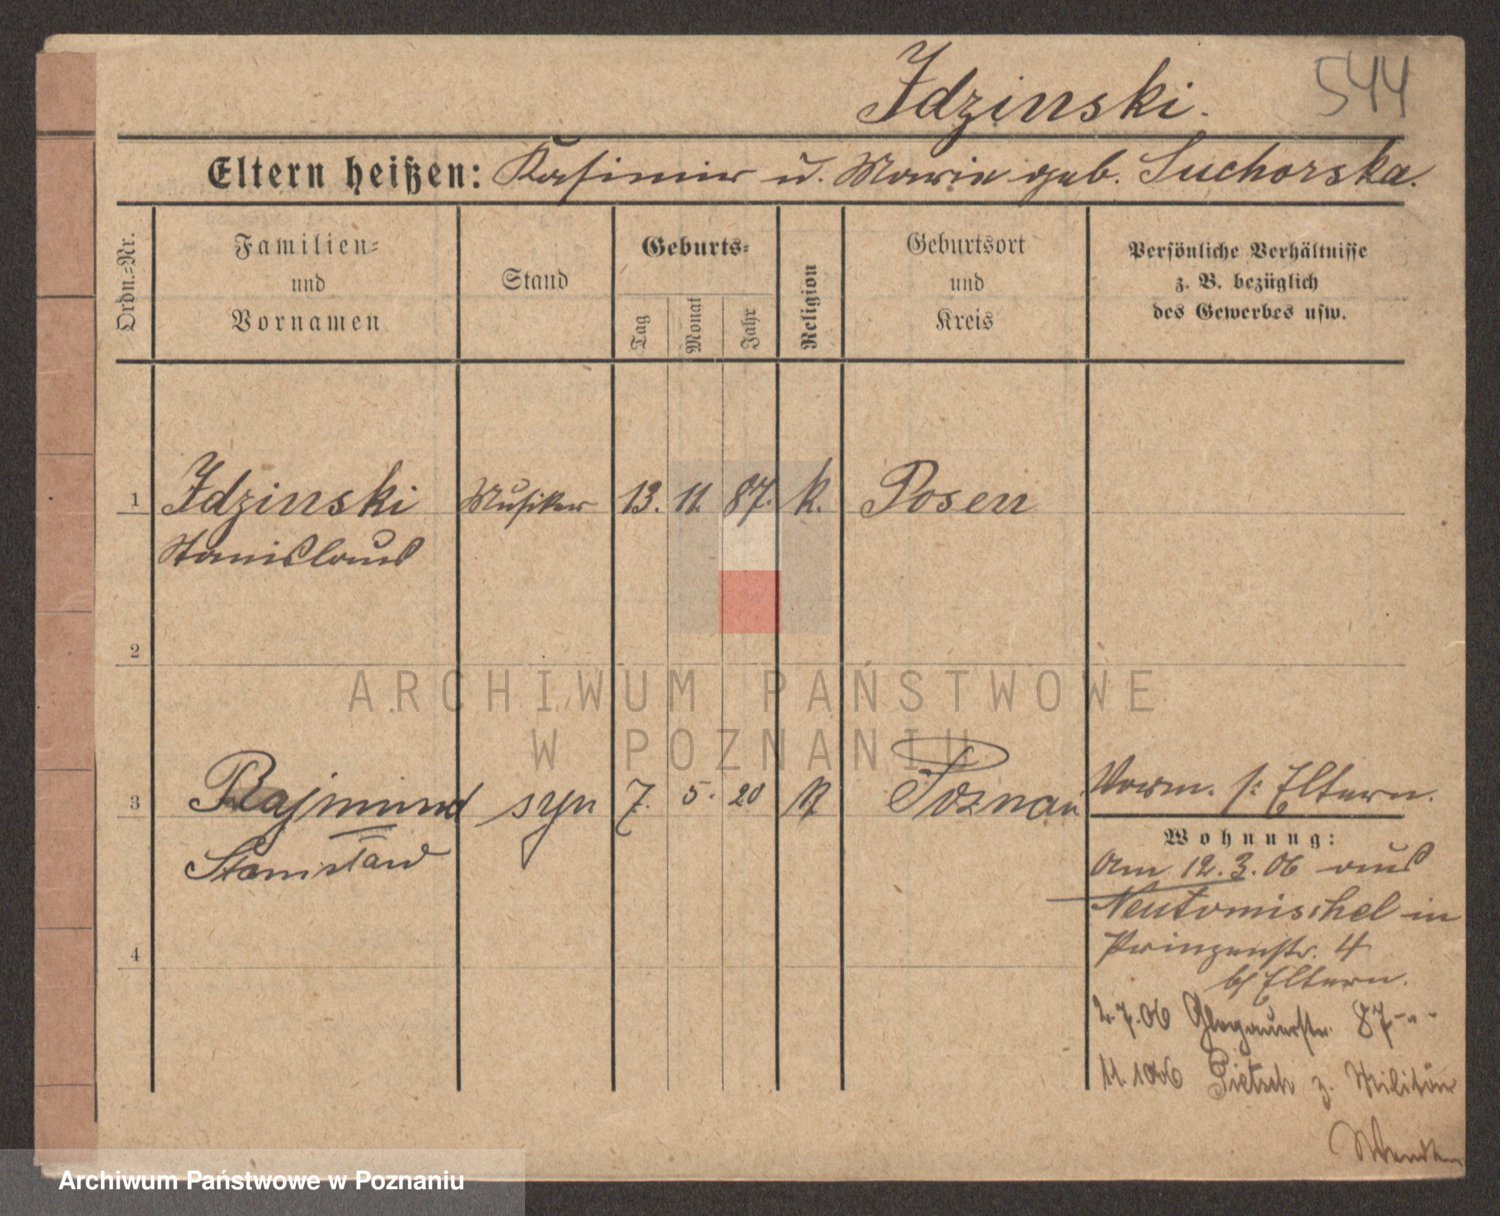 Idzinski.
544
Eltern heißen: Kasimir u. Marie geb. Suchorska.
Ordn.-Nr.
Familien=
und
Vornamen
Stand
Geburts=
Tag
Monat
Jahr
Religion
Geburtsort
und
Kreis
Persönliche Verhältnisse
z. B. bezüglich
des Gewerbes usw.
1 Idzinski Musiker 13. 11. 87. k. Posen
Stanislaus
2
ARCHIWUM PAŃSTWOWE
W POZNANIU
3 Rajmund syn 7. 5. 20 Poznań
Vorm. s: Eltern.
Wohnung:
Stanisław
Am 12.3.06 aus
Neutomischel in
Prinzenstr. 4
4
b/ Eltern.
2.7.06 Glogauerstr. 87 - " -
11.1006 Pietsch z. Militär
Archiwum Państwowe w Poznaniu